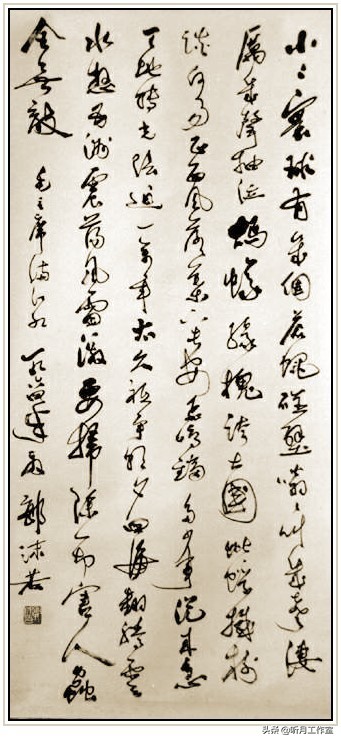 小〻寰球有幾個蒼蠅碰壁嗡〻叫幾聲淒
厲幾聲抽泣螞蟻緣槐誇大國蚍蜉撼樹
談何易正西風落葉下長安飛鳴鏑多少事從來急
天地轉光陰迫一萬年太久祗爭朝夕四海翻騰雲
水怒五洲震蕩風雷激要掃除一切害人蟲
全無敵 毛主席滿江紅 一九六四年 郭沫若
头条 @听月工作室